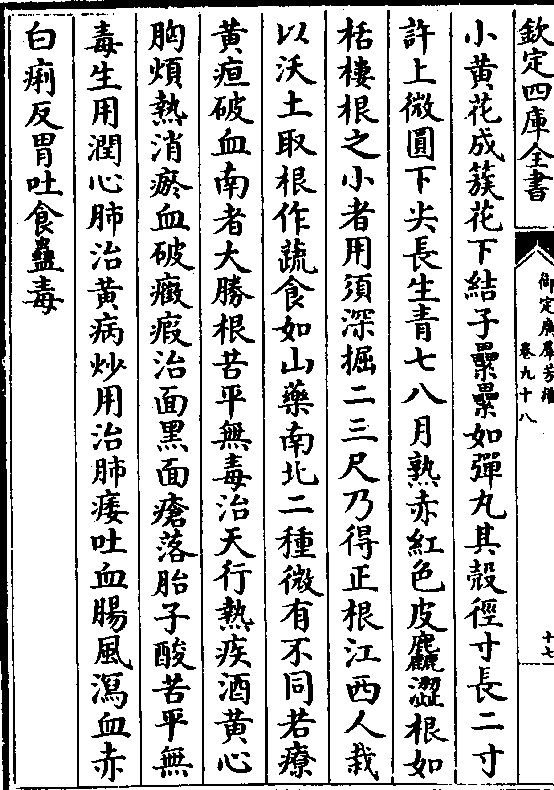 欽定四庫全書
御定廣羣芳譜
卷九十八
十七
小黄花成簇花下結子纍纍如彈丸其殼徑寸長二寸
許上微圓下尖長生青七八月熟赤紅色皮麤澀根如
栝樓根之小者用須深掘二三尺乃得正根江西人栽
以沃土取根作蔬食如山藥南北二種微有不同若療
黄疸破血南者大勝根苦平無毒治天行熱疾酒黄心
胸煩熱消瘀血破癥瘕治面黑面瘡落胎子酸苦平無
毒生用潤心肺治黄病炒用治肺痿吐血腸風瀉血赤
白痢反胃吐食蠱毒